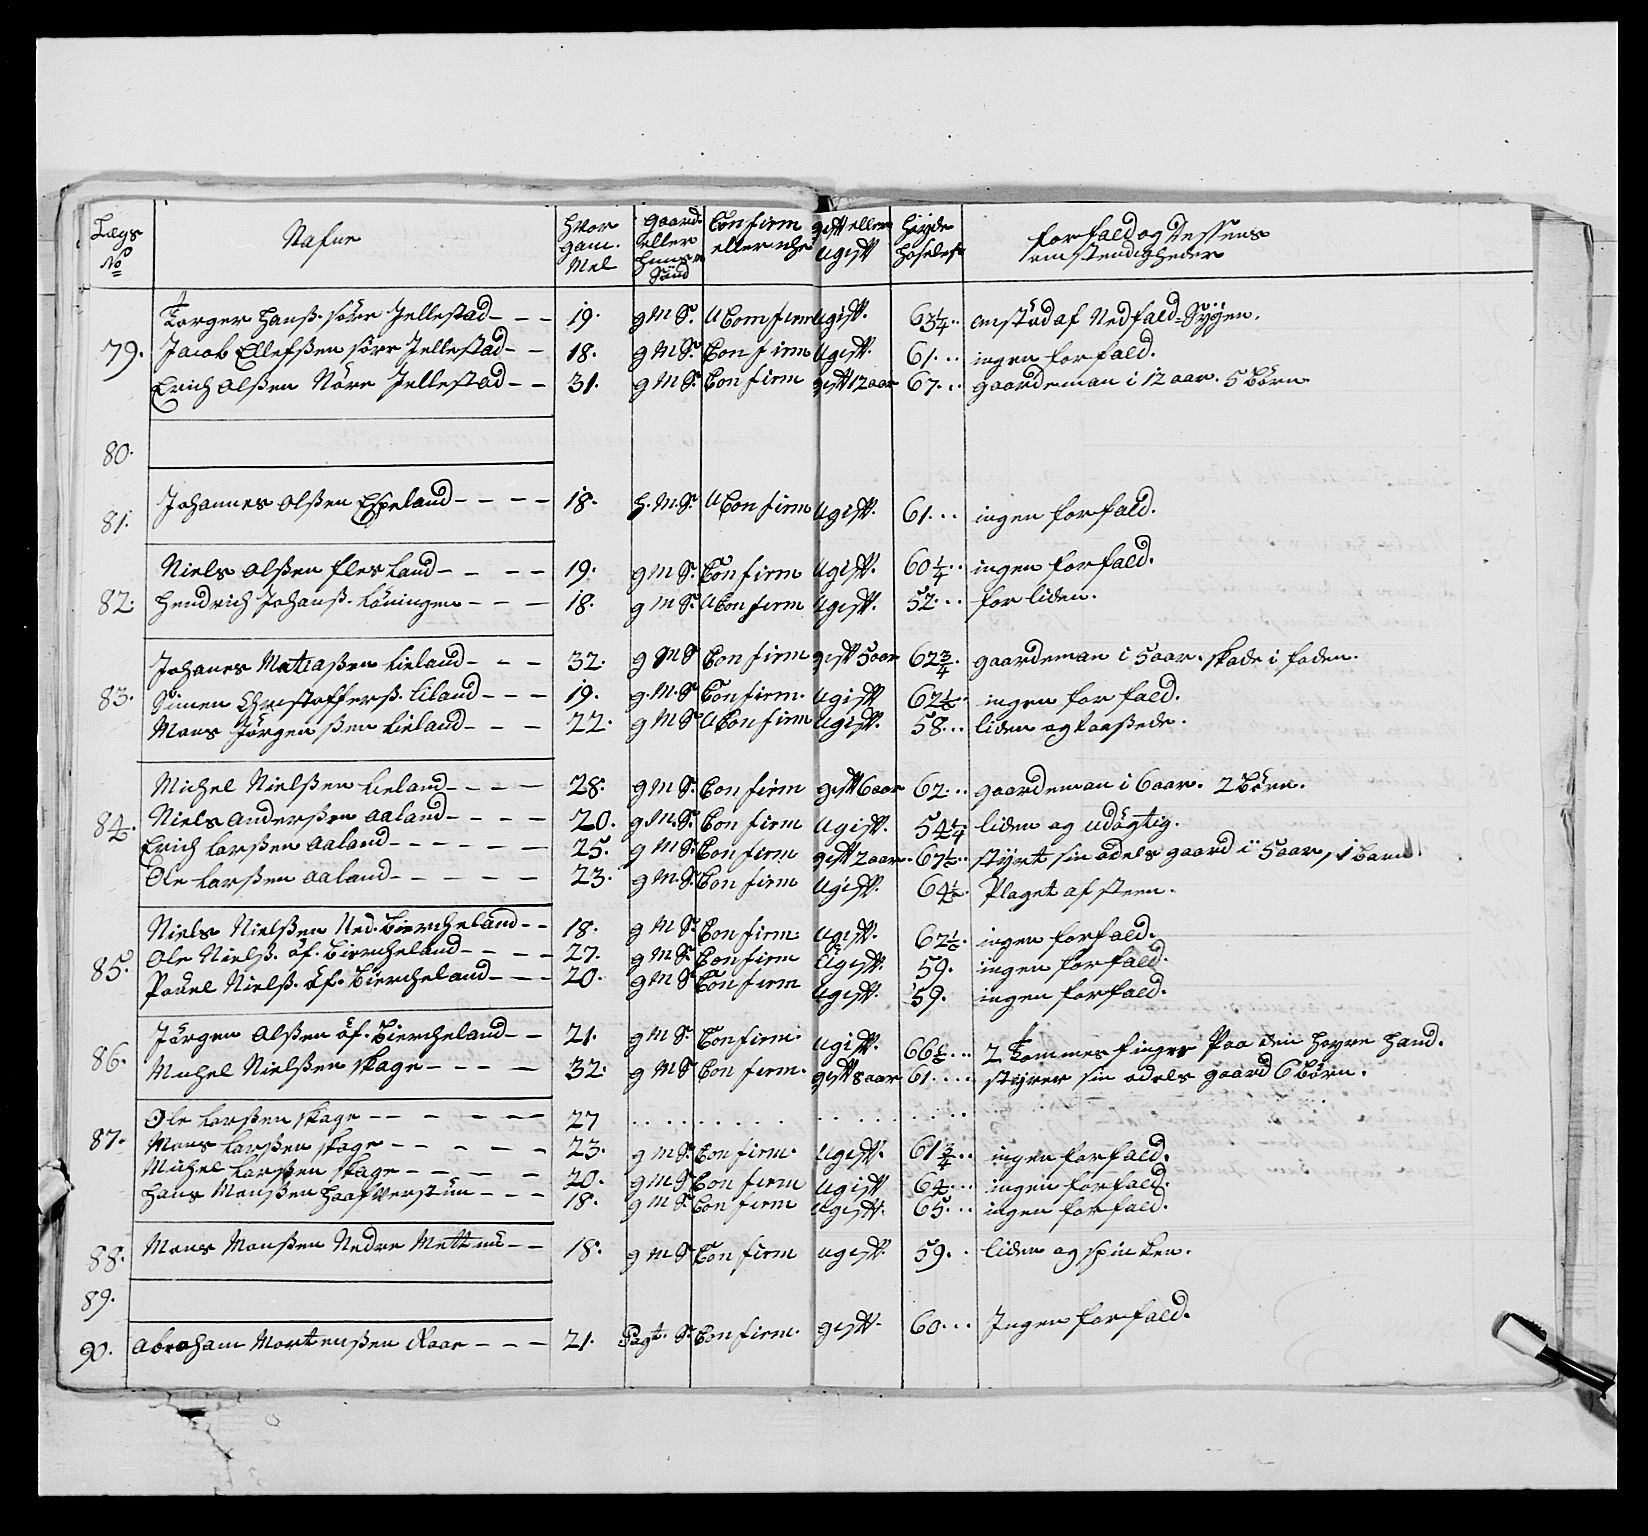 Lægs No | Nafne | Hvor gam. Mel | Gaard. eller Huus m Sönd | Confirm eller iche | gift eller Ugift | Höyde Hoseleste | Forfald og Dessens omstendigheder
Torger Hanß. Söre Jellestad | 19. | g M S. | UComfirm | Ugift. | 63¼.. | onstöd af Nedfald-Sygen.
79. Jacob Ellefßen Söre Jellestad | 18. | g M S. | Confirm | Ugift. | 61... | ingen forfald.
Erich Olßen Nöre Jellestad | 31. | g M S. | Confirm | gift 12 aar | 67... | gaardeman i 12 aar. 5 Börn
80.
81. Johannes Olßen Espeland | 18. | H. M. S. | UConfirm | Ugift. | 61... | ingen forfald.
Niels Olßen Flesland | 19. | g M S. | Confirm | Ugift. | 60¼.. | ingen forfald.
82. Hendrich Johanß. Löningen | 18. | g M S. | UConfirm | Ugift. | 52... | for liden.
Johanes Matiaßen Lieland | 32. | g M S | Confirm | gift 5 aar | 62¾. | gaardeman i 5 aar. skade i foden.
83. Simen Christofferß. Liland | 19. | g. M. S. | Confirm. | Ugift | 62½.. | ingen forfald.
Mons Jörgenßen Lieland | 22. | g M S | UConfirm | Ugift. | 58... | liden og
Michel Nielßen Lieland | 28. | g M S. | Confirm | gift 6 aar | 62.. | gaardeman i 6 aar. 2 Börn.
84. Niels Anderßen Aaland | 20. | g M. S. | Confirm | Ugift. | 54¼ | liden og Udögtig.
Erich Larßen Aaland | 25. | g M S. | Confirm | gift 2 aar. | 67½.. | styrt sin odels gaard i 5 aar, 1 barn.
Ole Larßen Aaland | 23. | g M. S. | Confirm | Ugift. | 64½. | Plaget af steen.
Niels Nielßen Ned. Biercheland | 18. | g M S. | Confirm. | Ugift. | 62½. | ingen forfald.
85. Ole Nielß. öf. Biercheland | 27. | g M S. | Confirm | Ugift. | 59. | ingen forfald.
Pouel Nielß. öf. Biercheland | 20. | g M S | Confirm | Ugift. | 59. | ingen forfald.
Jörgen Olßen öf. Biercheland | 21. | g M S. | Confirm. | Ugift. | 66½... | 2 Kommer finger Paa den Höyre Hand.
86. Michel Nielßen Skage | 32. | g M S. | Confirm. | gift 8 aar | 61.... | styrer sin odels gaard 6 Börn.
Ole Larßen Skage | 27 | ....
87. Mons Larßen Skage | 23. | g M S. | Confirm. | Ugift. | 61¾.. | ingen forfald.
Michel Larßen Skage | 20. | g M S | Confirm | Ugift | 64... | ingen forfald.
Hans Monßen Haafverstün | 18. | g M S. | Confirm | Ugift. | 65... | ingen forfald.
88. Mons Monßen Nedre Mettnü | 18. | g M S. | Confirm | Ugift. | 59.. | liden og spincken.
89.
90. Abraham Mortenßen Raae | 21. | Pagt. S. | Confirm. | gift. | 60... | Ingen forfald.